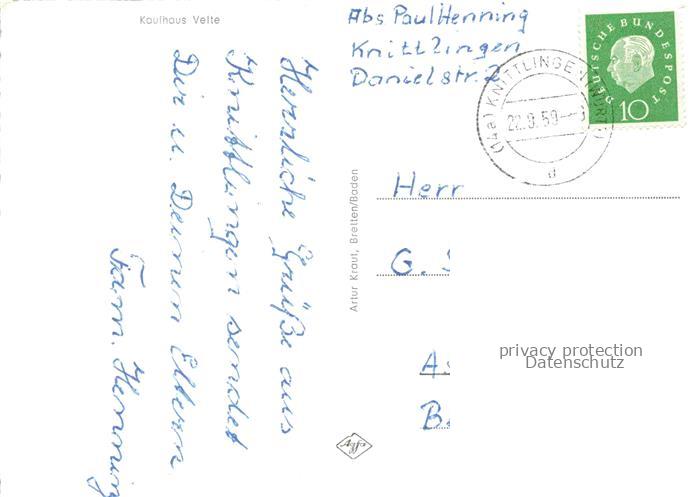 Kaufhaus Velte
Abs Paul Henning
Knittlingen
Danielstr. 2
DEUTSCHE BUNDESPOST
10
(14a) KNITTLINGEN (WÜRTT)
22.9.59
d
Herzliche Grüße aus
Knittlingen sendet
Dir u. Deinen Eltern
Fam. Henning
Artur Kraut, Bretten/Baden
Herr
G.
A
B
privacy protection
Datenschutz
Agfa